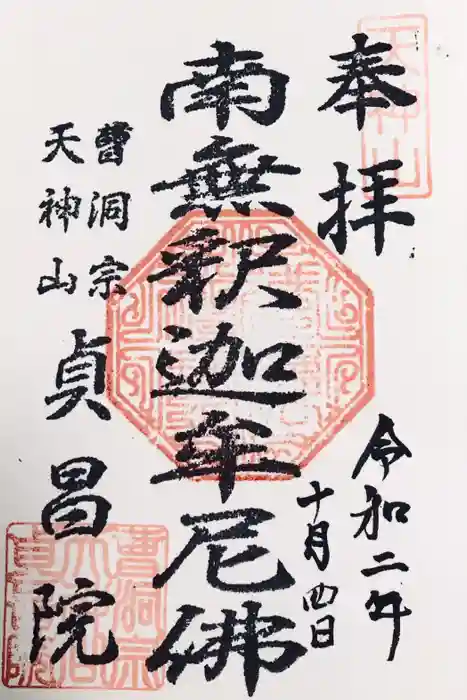 奉拝
天神山
令和二年
十月四日
南無釈迦牟尼佛
曹洞宗
天神山
貞昌院
曹洞宗